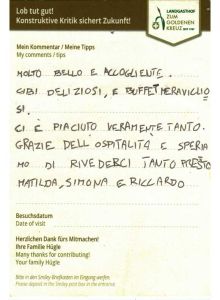 Lob tut gut!
Konstruktive Kritik sichert Zukunft!
LANDGASTHOF
ZUM
GOLDENEN
KREUZ
Mein Kommentar / Meine Tipps
My comments / tips
MOLTO BELLO E ACCOGLIENTE.
CIBI DELIZIOSI, E BUFFET MERAVIGLIO
SI.
CI È PIACIUTO VERAMENTE TANTO.
GRAZIE DELL OSPITALITÀ E SPERIA
MO DI RIVEDERCI TANTO PRESTO
MATILDA, SIMONA E RICCARDO
Besuchsdatum
Date of visit
Herzlichen Dank fürs Mitmachen!
Ihre Familie Hügle
Many thanks for contributing!
Your family Hügle
Bitte in den Smiley-Briefkasten im Eingang werfen.
Please deposit in the Smiley post box in the entrance